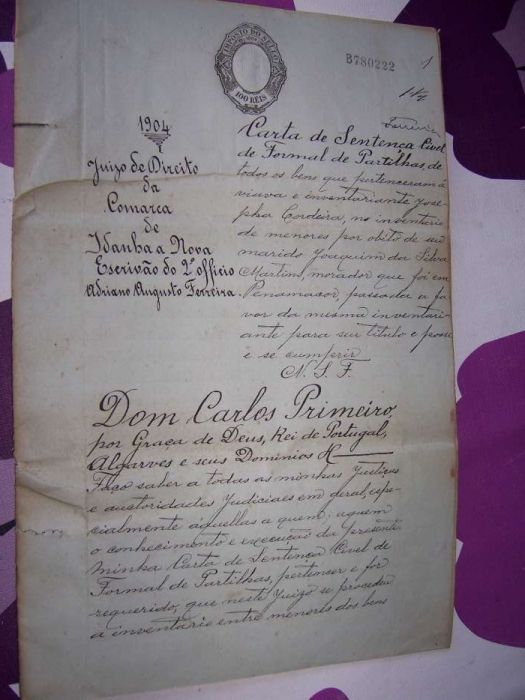 IMPOSTO DO SELLO
100 RÉIS
B780222
1
Ferreira
1904
Juizo de Direito
da
Comarca
de
Idanha a Nova
Escrivão do 2º officio
Adriano Augusto Ferreira.
Carta de Sentença Civel
de Formal de Partilhas, de
todos os bens que pertenceram á
viuva e inventariante Jose-
pha Cordeira, no inventario
de menores por obito de seu
marido Joaquim da Silva
Martins, morador que foi em
Penamacor, passada a fa-
vor da mesma inventari-
ante para seu titulo e posse
e se cumprir
N. S. F.
Dom Carlos Primeiro,
por Graça de Deus, Rei de Portugal,
Algarves e seus Dominios &
Faço saber a todas as minhas Justiças
e auctoridades Judiciaes em geral, espe-
cialmente aquellas a quem
o conhecimento e execução da presente
minha Carta de Sentença Civel de
Formal de Partilhas, pertencer e for
requerido, que neste Juizo se procedeu
a inventario entre menores dos bens